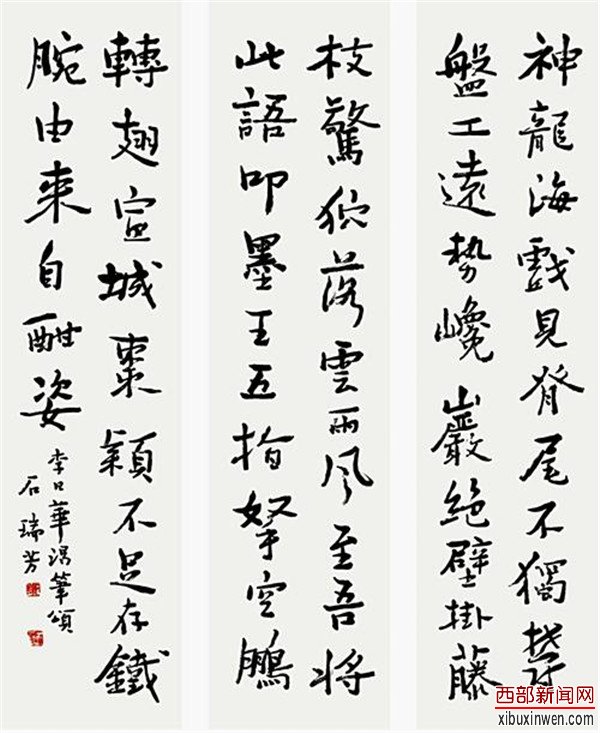 神龍海戲見脊尾不獨欝
盤工遠勢巉巖絕壁掛藤
枝驚猊落雲雨風至吾將
此語叩墨王五指拏空鵬
轉翅宣城棗穎不足存鐵
腕由來自酣姿
李日華渴筆頌
石瑞芳
西部新闻网
xibuxinwen.com